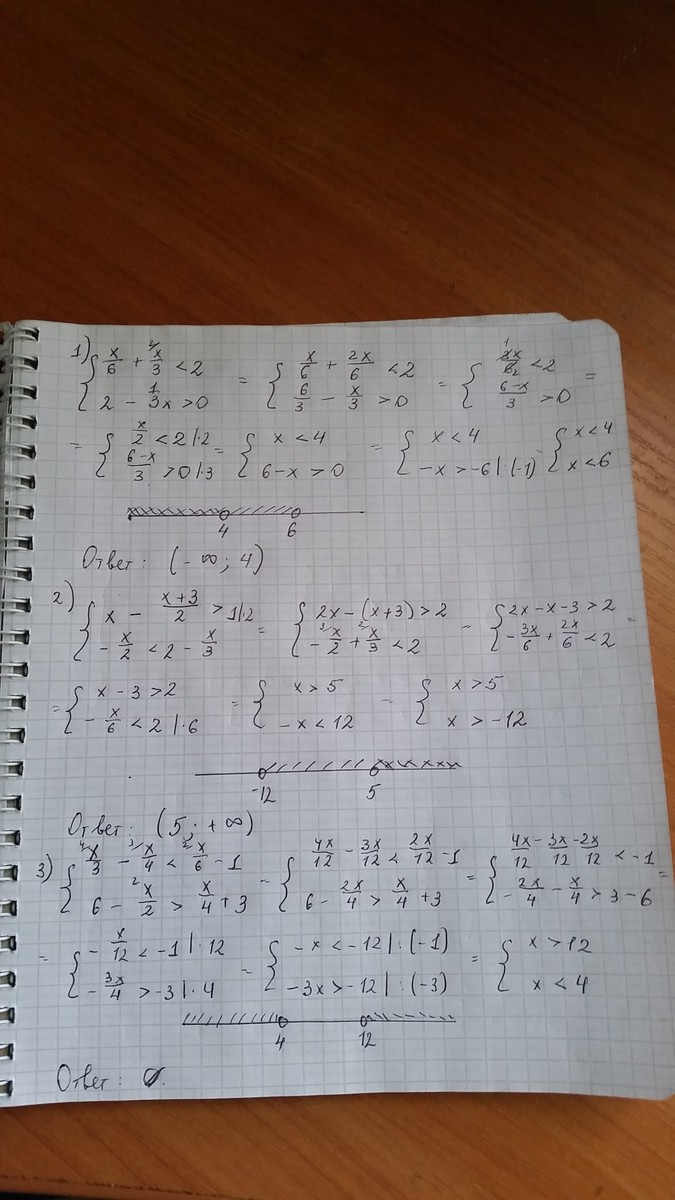 1) { x/6 + ²⁄x/3 < 2 ; 2 - 1/3 x > 0 = { x/6 + 2x/6 < 2 ; 6/3 - x/3 > 0 = { 3x/6 ¹ ₂ < 2 ; 6-x/3 > 0 =
= { x/2 < 2 |·2 ; 6-x/3 > 0 |·3 = { x < 4 ; 6-x > 0 = { x < 4 ; -x > -6 |·(-1) = { x < 4 ; x < 6
4 6
Ответ: (-∞; 4)
2) { x - x+3/2 > 1 |·2 ; - x/2 < 2 - x/3 = { 2x - (x+3) > 2 ; - ³⁄x/2 + ²⁄x/3 < 2 = { 2x - x - 3 > 2 ; - 3x/6 + 2x/6 < 2 =
= { x - 3 > 2 ; - x/6 < 2 |·6 = { x > 5 ; -x < 12 = { x > 5 ; x > -12
-12 5
Ответ: (5; +∞)
3) { ⁴⁄x/3 - ³⁄x/4 < ²⁄x/6 - 1 ; 6 - ²⁄x/2 > x/4 + 3 = { 4x/12 - 3x/12 < 2x/12 - 1 ; 6 - 2x/4 > x/4 + 3 = { 4x/12 - 3x/12 - 2x/12 < -1 ; - 2x/4 - x/4 > 3 - 6 =
= { - x/12 < -1 |·12 ; - 3x/4 > -3 |·4 = { -x < -12 |:(-1) ; -3x > -12 |:(-3) = { x > 12 ; x < 4
4 12
Ответ: Ø.